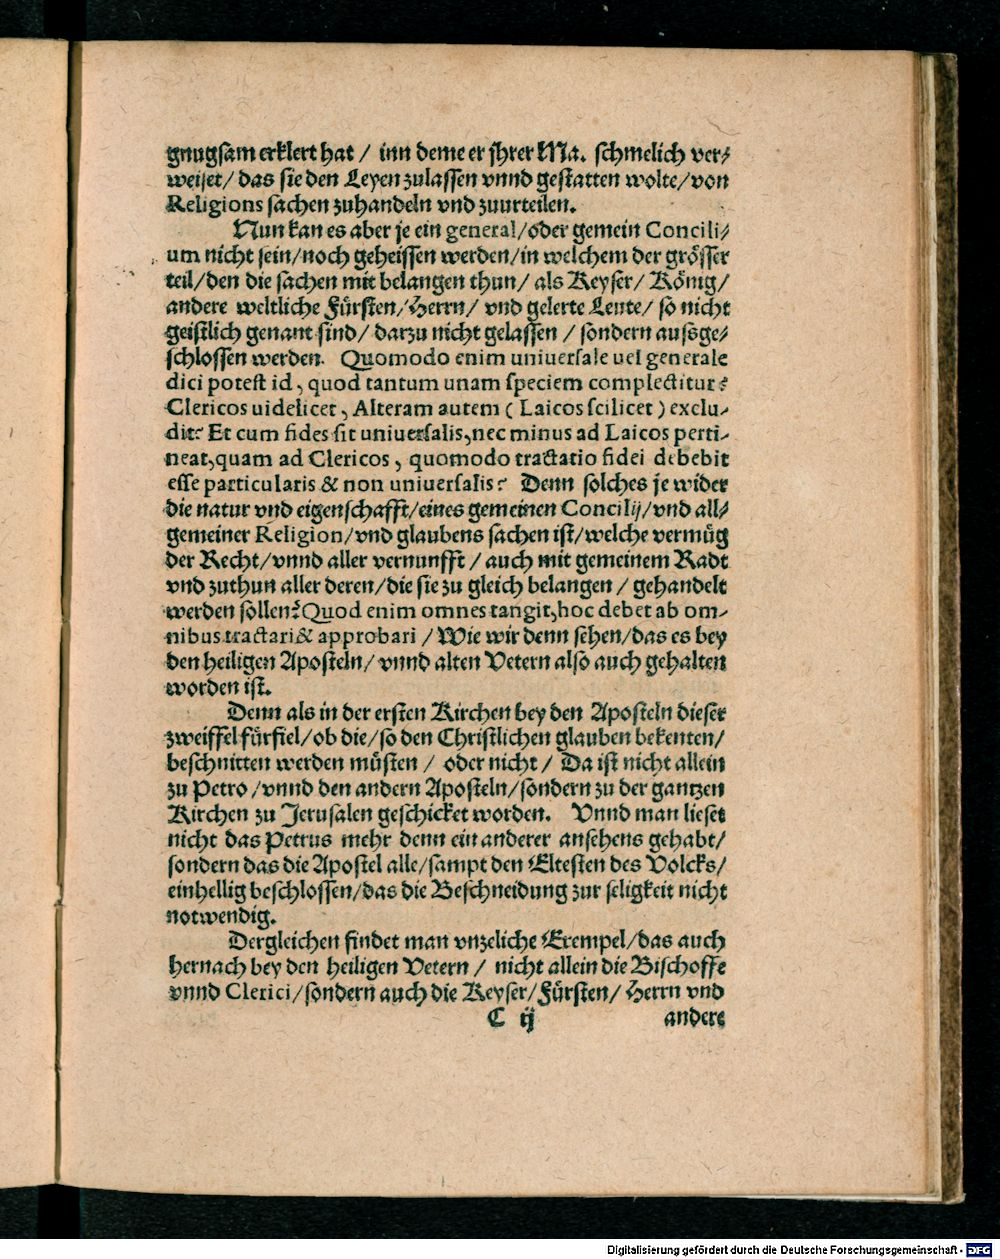 gnugsam erklert hat / inn deme er jhrer Ma. schmelich ver⸗
weiset / das sie den Leyen zulassen vnnd gestatten wolte / von
Religions sachen zuhandeln vnd zuurteilen.
Nun kan es aber je ein general / oder gemein Concili⸗
um nicht sein / noch geheissen werden / in welchem der grösser
teil / den die sachen mit belangen thun / als Keyser / König /
andere weltliche Fürsten / Herrn / vnd gelerte Leute / so nicht
geistlich genant sind / darzu nicht gelassen / sondern aussge⸗
schlossen werden. Quomodo enim uniuersale uel generale
dici potest id, quod tantum unam speciem complectitur?
Clericos uidelicet, Alteram autem ( Laicos scilicet ) exclu⸗
dit? Et cum fides sit uniuersalis, nec minus ad Laicos perti⸗
neat, quam ad Clericos, quomodo tractatio fidei debebit
esse particularis & non uniuersalis? Denn solches je wider
die natur vnd eigenschafft / eines gemeinen Concilij / vnd all⸗
gemeiner Religion / vnd glaubens sachen ist / welche vermüg
der Recht / vnnd aller vernunfft / auch mit gemeinem Radt
vnd zuthun aller deren / die sie zu gleich belangen / gehandelt
werden sollen? Quod enim omnes tangit, hoc debet ab om⸗
nibus tractari & approbari / Wie wir denn sehen / das es bey
den heiligen Aposteln / vnnd alten Vetern also auch gehalten
worden ist.
Denn als in der ersten Kirchen bey den Aposteln dieser
zweiffel fürfiel / ob die / so den Christlichen glauben bekenten /
beschnitten werden müsten / oder nicht / Da ist nicht allein
zu Petro / vnnd den andern Aposteln / sondern zu der gantzen
Kirchen zu Jerusalen geschicket worden. Vnnd man lieset
nicht das Petrus mehr denn ein anderer ansehens gehabt /
sondern das die Apostel alle / sampt den Eltesten des Volcks /
einhellig beschlossen / das die Beschneidung zur seligkeit nicht
notwendig.
Dergleichen findet man vnzeliche Exempel / das auch
hernach bey den heiligen Vetern / nicht allein die Bischoffe
vnnd Clerici / sondern auch die Keyser / Fürsten / Herrn vnd
C ij andere
Digitalisierung gefördert durch die Deutsche Forschungsgemeinschaft - DFG